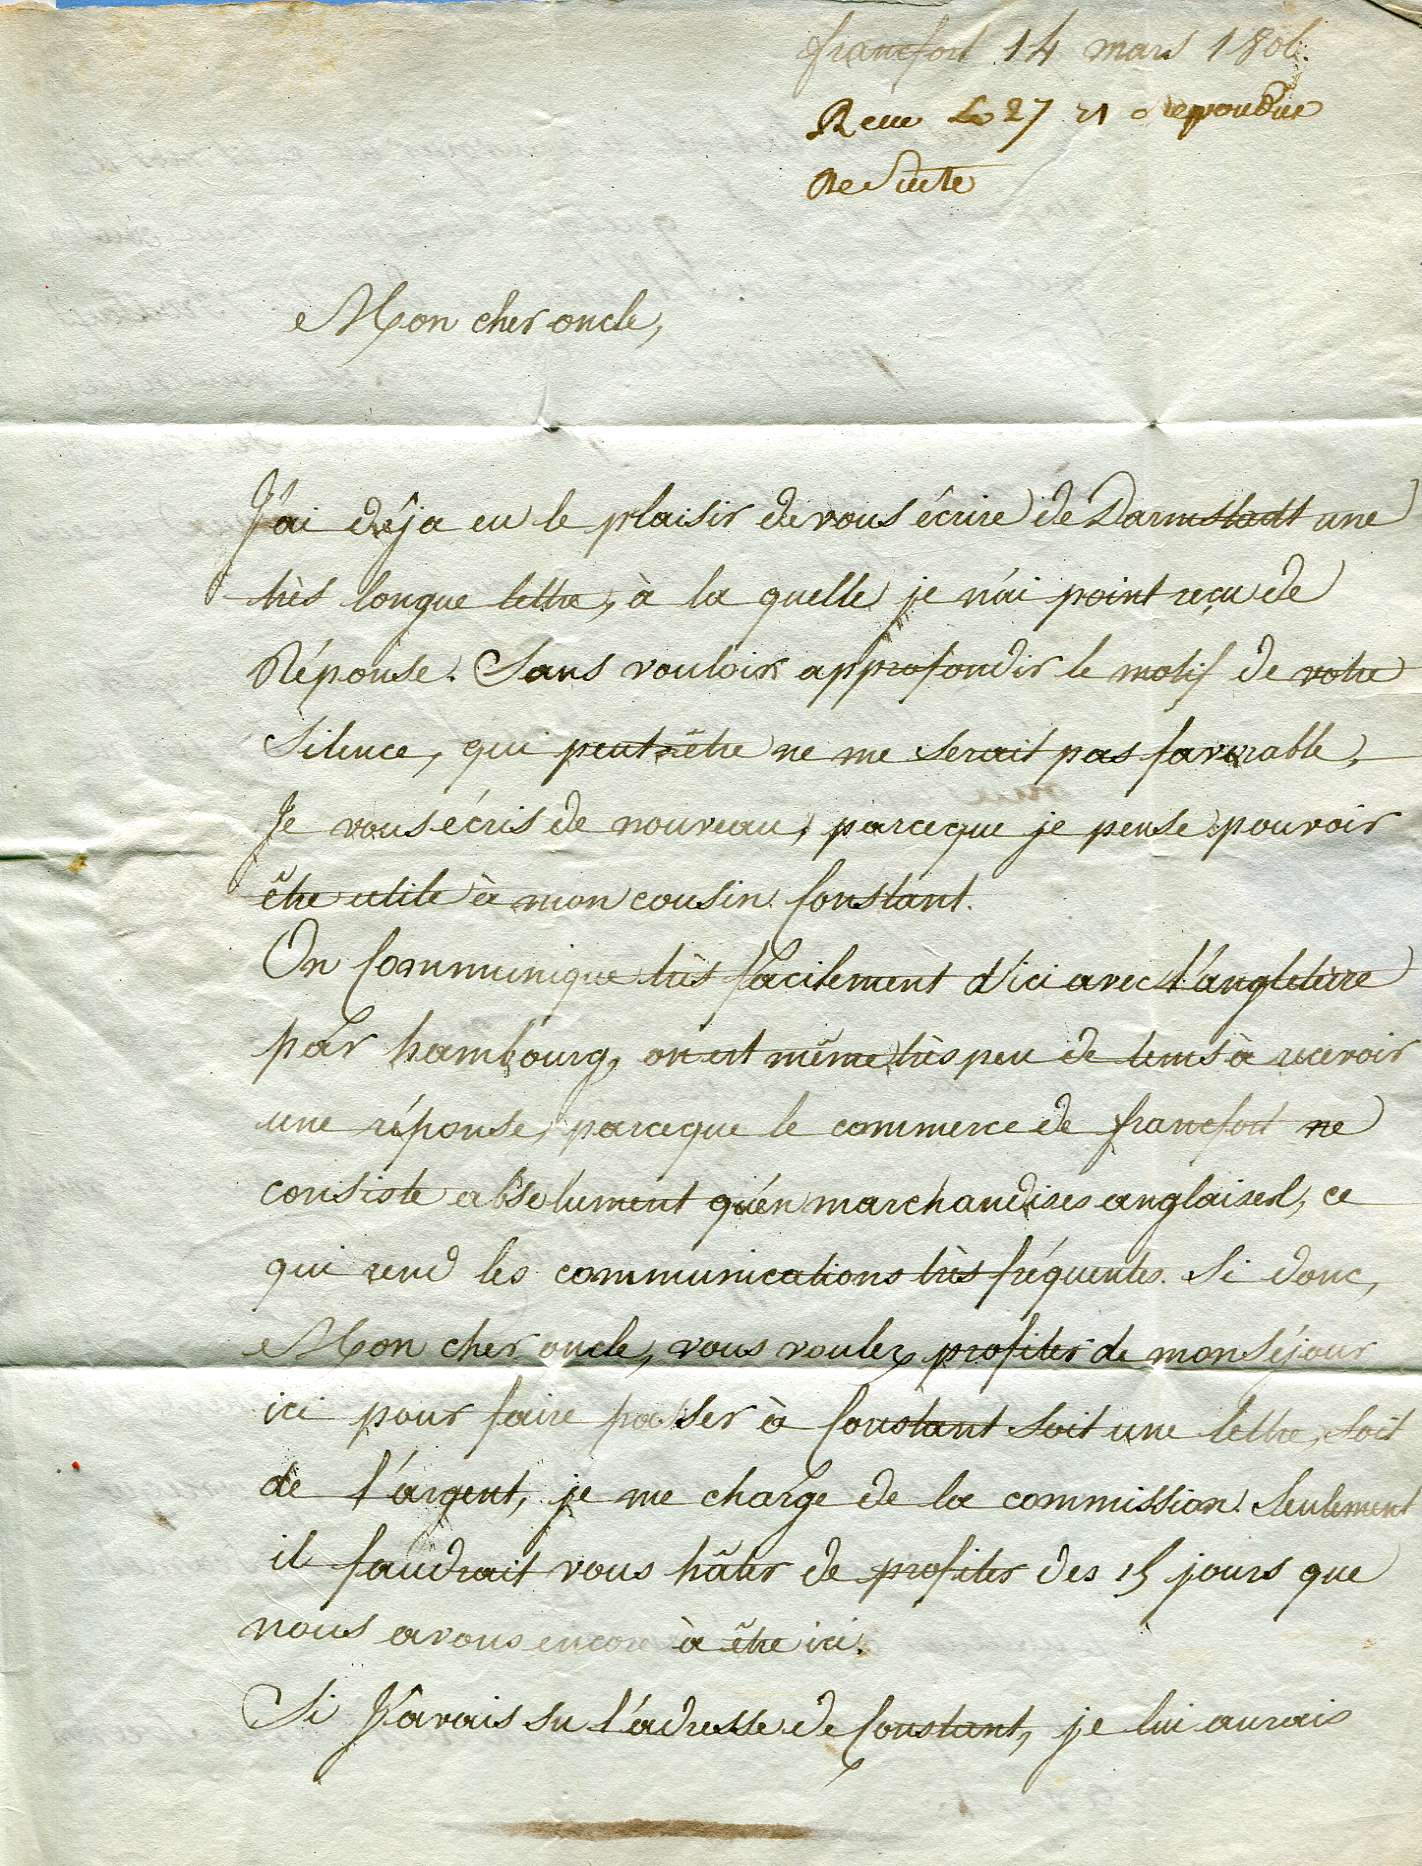 francfort 14 mars 1806.
Recue Le 27 et repondue
De suite
Mon cher oncle,
J'ai déja eu le plaisir de vous écrire de Darmstadt une
très longue lettre, à la quelle je n'ai point reçu de
Réponse. Sans vouloir approfondir le motif de votre
silence, qui peut être ne me serait pas favorable,
Je vous écris de nouveau, parceque je pense pouvoir
être utile à mon cousin Constant.
On Communique très facilement d'ici avec l'angleterre
par hambourg, on est même très peu de tems à recevoir
une réponse, parceque le commerce de francfort ne
consiste absolument qu'en marchandises anglaises, ce
qui rend les communications très fréquentes. Si donc,
Mon cher oncle, vous voulez profiter de mon séjour
ici pour faire passer à Constant soit une lettre, soit
de l'argent, je me charge de la commission. Seulement
il faudrait vous hâter de profiter des 15 jours que
nous avons encore à être ici.
Si J'avais su l'adresse de Constant, je lui aurais